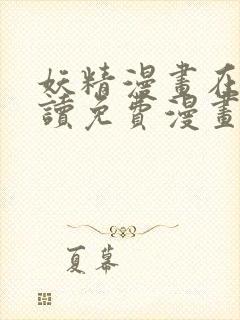 妖精漫畫在
讀免費漫畫
夏幕